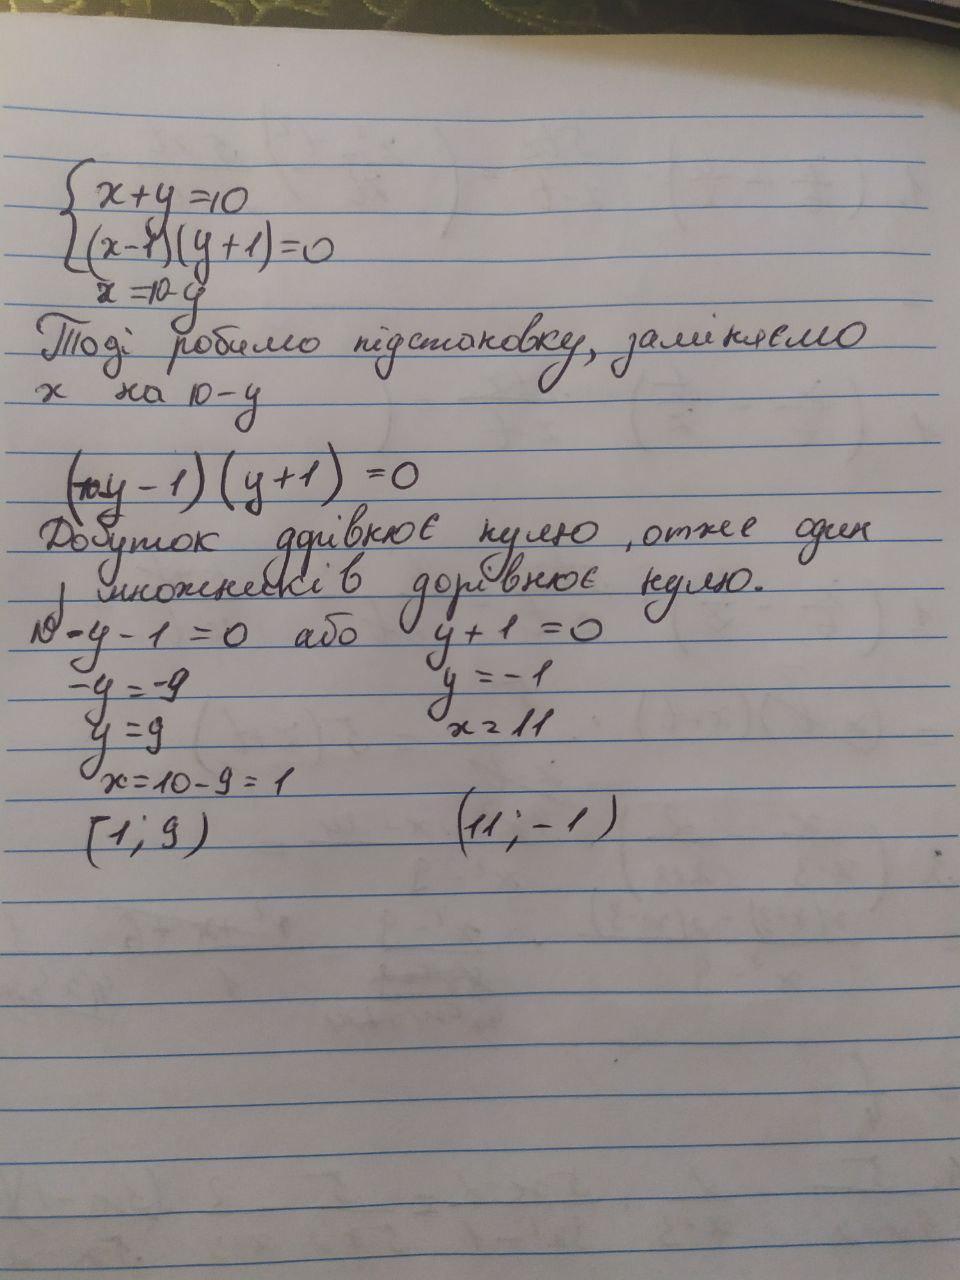 x+y=10
(x-1)(y+1)=0
x=10-y
Тоді робимо підстановку, заміняємо
x на 10-y
(10-y-1)(y+1)=0
Добуток дорівнює нулю, отже один
множників дорівнює нулю.
10-y-1=0 або y+1=0
-y=-9 y=-1
y=9 x=11
x=10-9=1
(1;9) (11;-1)